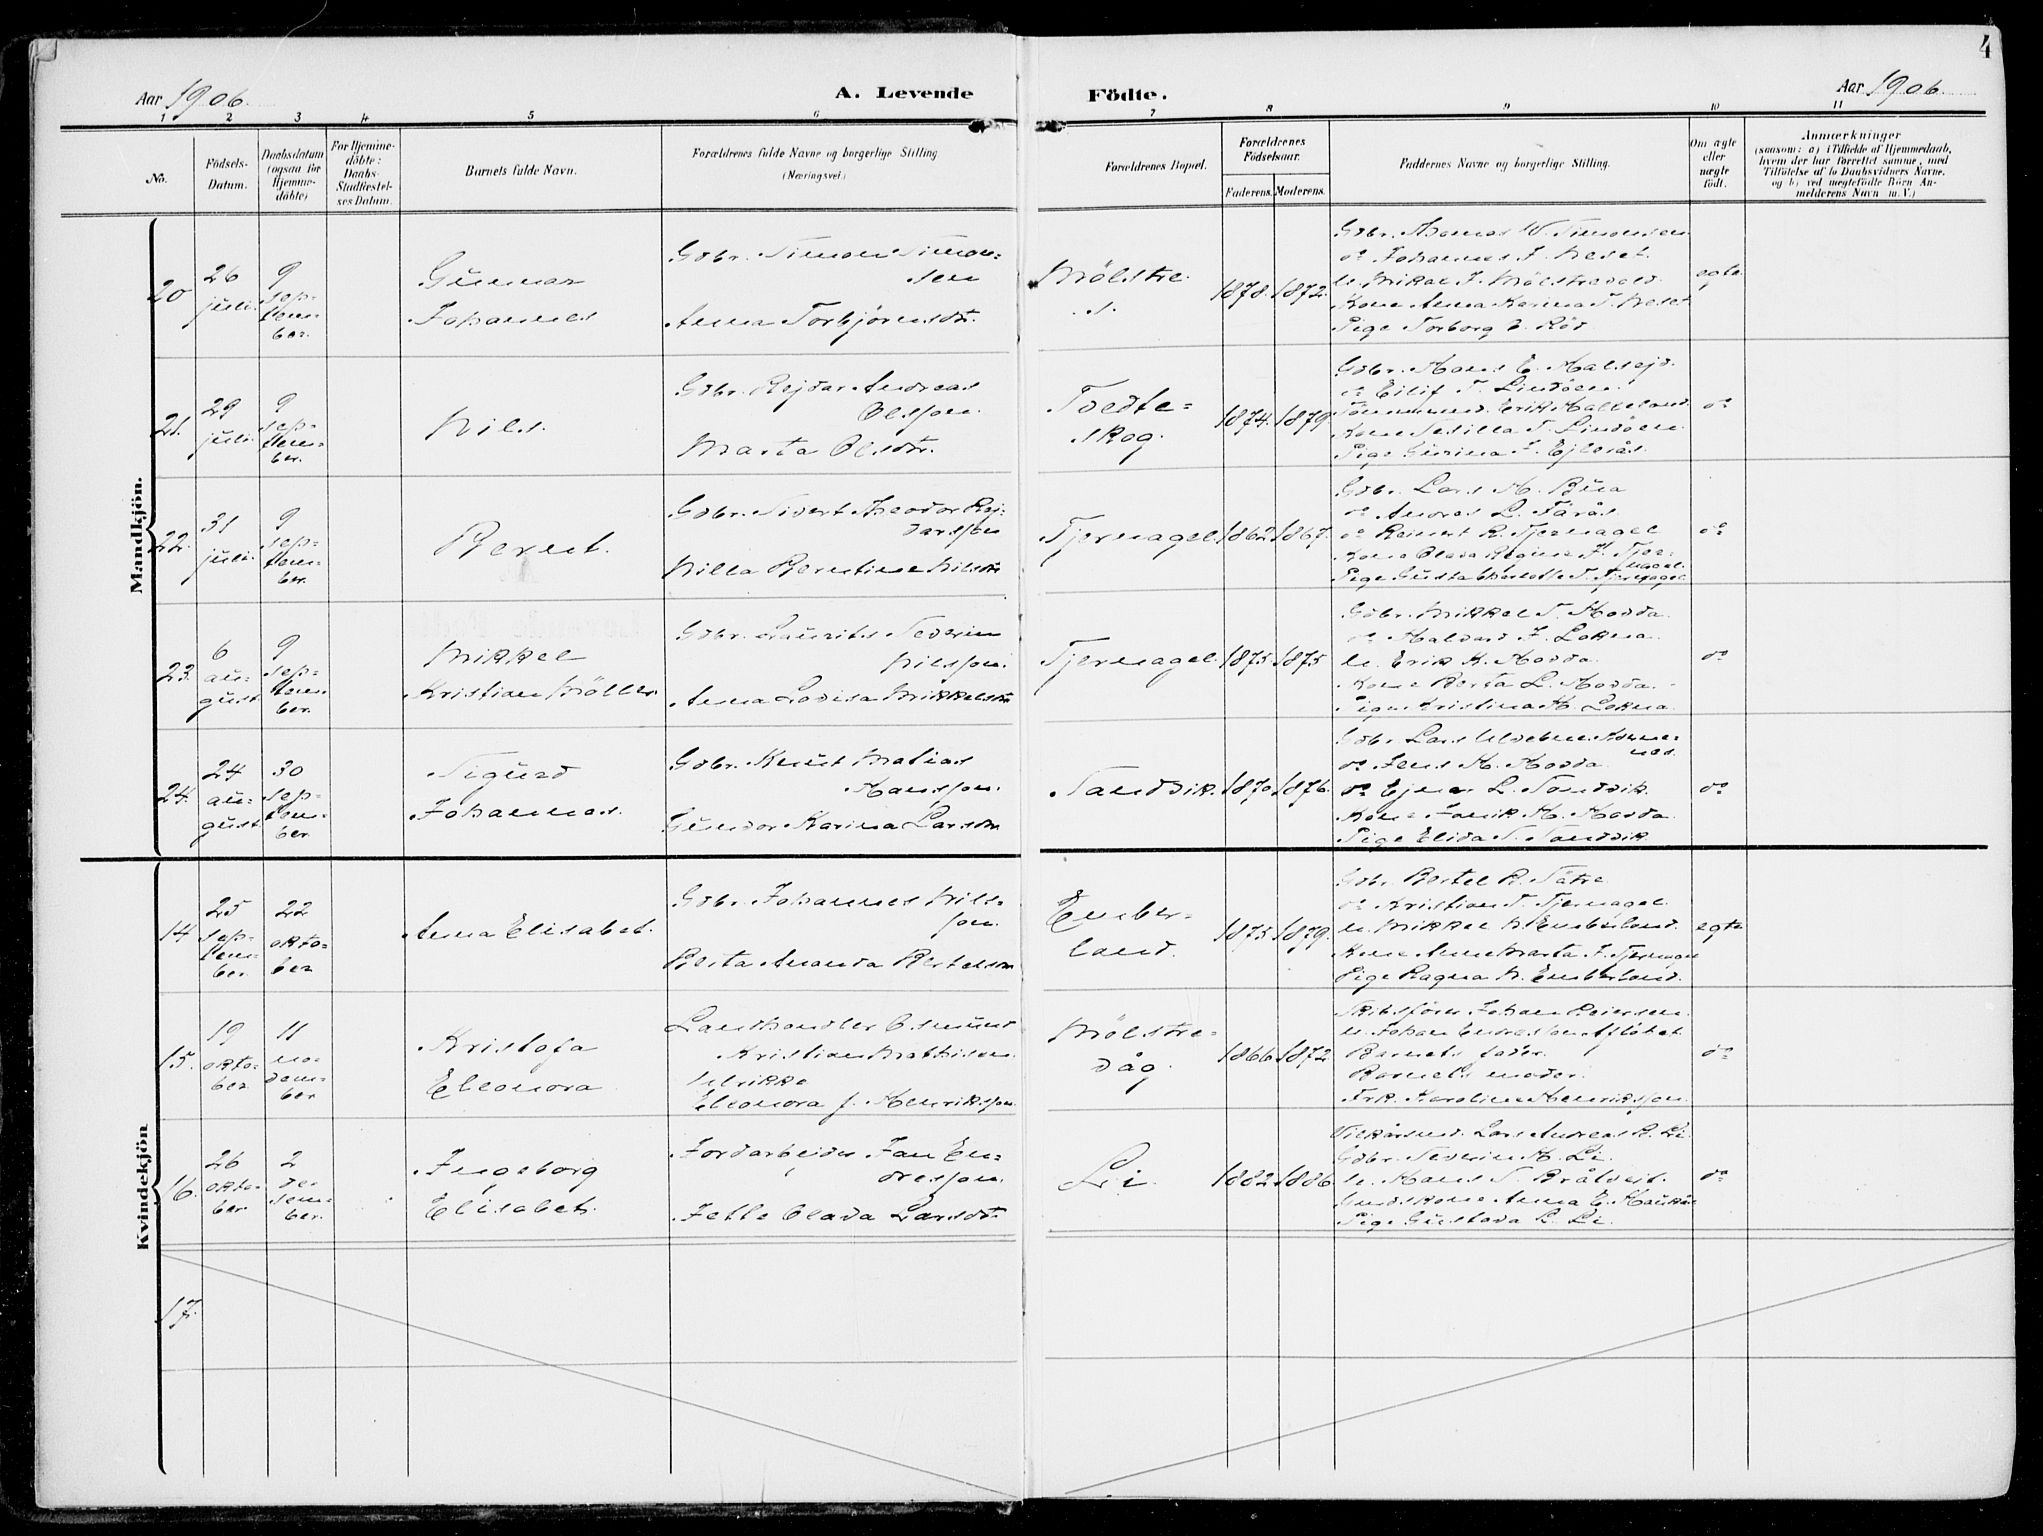 4
Aar 1906.
A. Levende
Födte.
Aar 1906.
1 2 3 4 5 6 7 8 9 10 11
No.
Födsels-
Datum.
Daabsdatum
(ogsaa for
Hjemme-
döbte)
For Hjemme-
döbte:
Daabs-
Stadfæstel-
ses Datum.
Barnets fulde Navn.
Forældrenes fulde Navne og borgerlige Stilling
(Næringsvei.)
Forældrenes Bopæl.
Forældrenes
Födselsaar.
Faderens. Moderens.
Faddernes Navne og borgerlige Stilling.
Om ægte
eller
uægte
födt.
Anmærkninger
(saasom: a) i Tilfælde af Hjemmedaab,
hvem der har forrettet samme, med
Tilföielse af to Daabsvidners Navne,
og b) ved uægtefödte Börn An-
melderens Navn m. V.)
Mandkjön.
20
26
juli.
9
sep-
tem-
ber.
Gunnar
Johannes
Gdbr. Simon Simon-
sen
Anna Torbjörnsdtr.
Mölstre
s.
1878. 1872.
Gdbr. Thomas W. Simonsen
do Johannes J. Neset.
u. Mikal J. Mölstrevold.
Kone Anna Karina T. Neset
Pige Torborg E. Röd
egte
21.
29
juli.
9
sep-
tem-
ber.
Nils.
Gdbr. Rejdar Andreas
Olsson.
Marta Olsdtr.
Tvedte-
skog.
1874. 1879.
Gdbr. Hans E. Halsejd.
do Eilif T. Lindöen.
Tömmermd. Erik Halleland.
Kone Tesilla T. Lindöen.
Pige Gurina J. Ejlerås.
do
22.
31
juli.
9
sep-
tem-
ber.
Berent.
Gdbr. Sivert Theodor Rej-
darsson
Nilla Berntine Nilsdtr
Tjernagel. 1862. 1867.
Gdbr. Lars H. Bua
do Andres L. Färås
do Reinert R. Tjernagel
Kone Olava Regine K. Tjer-
nagel.
Pige Gusta Charlotte T. Tjernagel
do
23.
6
au-
gust
9
sep-
tem-
ber.
Mikkel
Kristian Möller.
Gdbr. Laurits Severin
Nilsson.
Anna Lovisa Mikkelsdtr
Tjernagel. 1875. 1875
Gdbr. Mikkel T. Hovda.
do Halvard J. Lokna.
u. Erik K. Hovda.
Kone Berta L. Hovda.
Pige Kristina H. Lokna.
do
24.
24
au-
gust
30
sep-
tem-
ber.
Sigurd
Johannes.
Gdbr. Knut Matias
Hansson.
Gundor Karina Larsdtr
Sandvik. 1870. 1876.
do Jens H. Hovda.
do Ejner L. Sandvik.
Pige Elida T. Sandvik
do
Kvindekjön
14
25
sep-
tem-
ber.
22
okto-
ber
Anna Elisabet.
Gdbr. Johannes Nils-
son.
Berta Amanda Bertelsdtr
Ember-
land.
1875. 1879.
Gdbr. Bertel R. Sätre
do Kristian T. Tjernagel.
u. Mikkel N. Emberland.
Kone Anna Marta J. Tjernagel
Pige Ragna N. Emberland.
egte
15.
19
okto-
ber.
11
no-
vem-
ber
Kristofa
Eleonora
Landhandler Osmund
Kristian Mathisen.
Ulrikke
Eleonora f. Henriksson.
Mölstre-
våg.
1866. 1872.
Skibsförer Johan Reiersen.
Barnets fader.
Barnets moder.
Frk. Karoline Henriksson.
do
16.
26
okto-
ber.
2
de-
sem-
ber.
Ingeborg
Elisabet.
Jordarbejder Jan En-
dresson.
Jette Olava Larsdtr.
Li. 1882. 1886.
Gdbr. Severin H. Li.
Pige Gustava L. Li.
do
17.